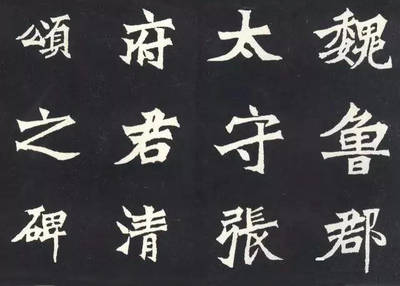 魏鲁郡
太守張
府君清
頌之碑